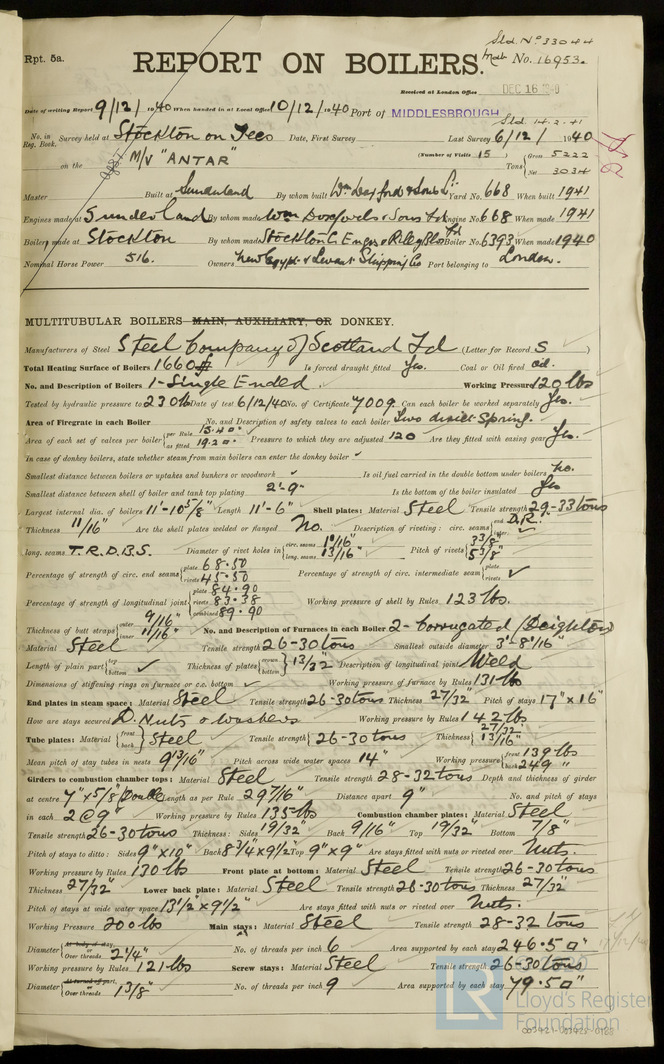 Sld. No 33044
Rpt. 5a.
REPORT ON BOILERS.
No. 16953.
Received at London Office DEC 16
Date of writing Report 9/12/1940 When handed in at Local Office 10/12/1940 Port of MIDDLESBROUGH
Sld. 14.2.41
No. in Reg. Book. Survey held at Stockton on Tees Date, First Survey Last Survey 6/12/1940
on the M/V "ANTAR" (Number of Visits 15) Tons { Gross 5222 Net 3034
Master Built at Sunderland By whom built Wm Doxford & Sons Ld. Yard No. 668 When built 1941
Engines made at Sunderland By whom made Wm Doxfords & Sons Ld Engine No. 668 When made 1941
Boilers made at Stockton By whom made Stockton C. Engrs & Riley Blrs Ld Boiler No. 6393 When made 1940
Nominal Horse Power 516. Owners New Egypt & Levant Shipping Co Port belonging to London.
MULTITUBULAR BOILERS MAIN, AUXILIARY, OR DONKEY.
Manufacturers of Steel Steel Company of Scotland Ld (Letter for Record S)
Total Heating Surface of Boilers 1660 Is forced draught fitted Yes. Coal or Oil fired oil.
No. and Description of Boilers 1-Single Ended. Working Pressure 120 lbs
Tested by hydraulic pressure to 230 lb Date of test 6/12/40 No. of Certificate 7009 Can each boiler be worked separately Yes.
Area of Firegrate in each Boiler No. and Description of safety valves to each boiler Two direct Spring.
Area of each set of valves per boiler { per Rule 15.40 as fitted 19.20 Pressure to which they are adjusted 120 Are they fitted with easing gear Yes.
In case of donkey boilers, state whether steam from main boilers can enter the donkey boiler ✓
Smallest distance between boilers or uptakes and bunkers or woodwork ✓ Is oil fuel carried in the double bottom under boilers no.
Smallest distance between shell of boiler and tank top plating 2'-9" Is the bottom of the boiler insulated Yes
Largest internal dia. of boilers 11'-10 5/8" Length 11'-6" Shell plates: Material Steel Tensile strength 29-33 tons
Thickness 11/16" Are the shell plates welded or flanged No. Description of riveting: circ. seams { end D.R. inter. ✓
long. seams T.R.D.B.S. Diameter of rivet holes in { circ. seams 1 1/16" long. seams 13/16" Pitch of rivets { 3 3/8" 5 3/8"
Percentage of strength of circ. end seams { plate 68.50 rivets 45.50 Percentage of strength of circ. intermediate seam { plate rivets ✓
Percentage of strength of longitudinal joint { plate 84.90 rivets 83.38 combined 89.90 Working pressure of shell by Rules 123 lbs.
Thickness of butt straps { outer 9/16" inner 11/16" No. and Description of Furnaces in each Boiler 2-Corrugated (Deighton)
Material Steel Tensile strength 26-30 tons Smallest outside diameter 3'-8 9/16"
Length of plain part { top bottom ✓ Thickness of plates { crown bottom } 13/32" Description of longitudinal joint Weld
Dimensions of stiffening rings on furnace or c.c. bottom ✓ Working pressure of furnace by Rules 131 lb
End plates in steam space: Material Steel Tensile strength 26-30 tons Thickness 27/32" Pitch of stays 17" x 16"
How are stays secured D. Nuts & Washers Working pressure by Rules 142 lbs
Tube plates: Material { front back } Steel Tensile strength { 26-30 tons Thickness { 27/32" 13/16"
Mean pitch of stay tubes in nests 9 3/16" Pitch across wide water spaces 14" Working pressure { front 139 lbs back 249 "
Girders to combustion chamber tops: Material Steel Tensile strength 28-32 tons Depth and thickness of girder
at centre 7" x 5/8" Double Length as per Rule 29 7/16" Distance apart 9" No. and pitch of stays
in each 2 @ 9" Working pressure by Rules 135 lbs Combustion chamber plates: Material Steel
Tensile strength 26-30 tons Thickness: Sides 19/32" Back 9/16" Top 19/32" Bottom 7/8"
Pitch of stays to ditto: Sides 9" x 10" Back 8 3/4 x 9 1/2 Top 9" x 9" Are stays fitted with nuts or riveted over Nuts.
Working pressure by Rules 130 lb Front plate at bottom: Material Steel Tensile strength 26-30 tons
Thickness 27/32" Lower back plate: Material Steel Tensile strength 26-30 tons Thickness 27/32"
Pitch of stays at wide water space 13 1/2" x 9 1/2" Are stays fitted with nuts or riveted over Nuts.
Working Pressure 200 lbs Main stays: Material Steel Tensile strength 28-32 tons
Diameter { At body of stay, or Over threads 2 1/4" No. of threads per inch 6 Area supported by each stay 246.5 □"
Working pressure by Rules 121 lbs Screw stays: Material Steel Tensile strength 26-30 tons
Diameter { At turned off part, or Over threads 1 3/8" No. of threads per inch 9 Area supported by each stay 79.5 □"
LR
Lloyd's Register
Foundation
003421-003428-0188